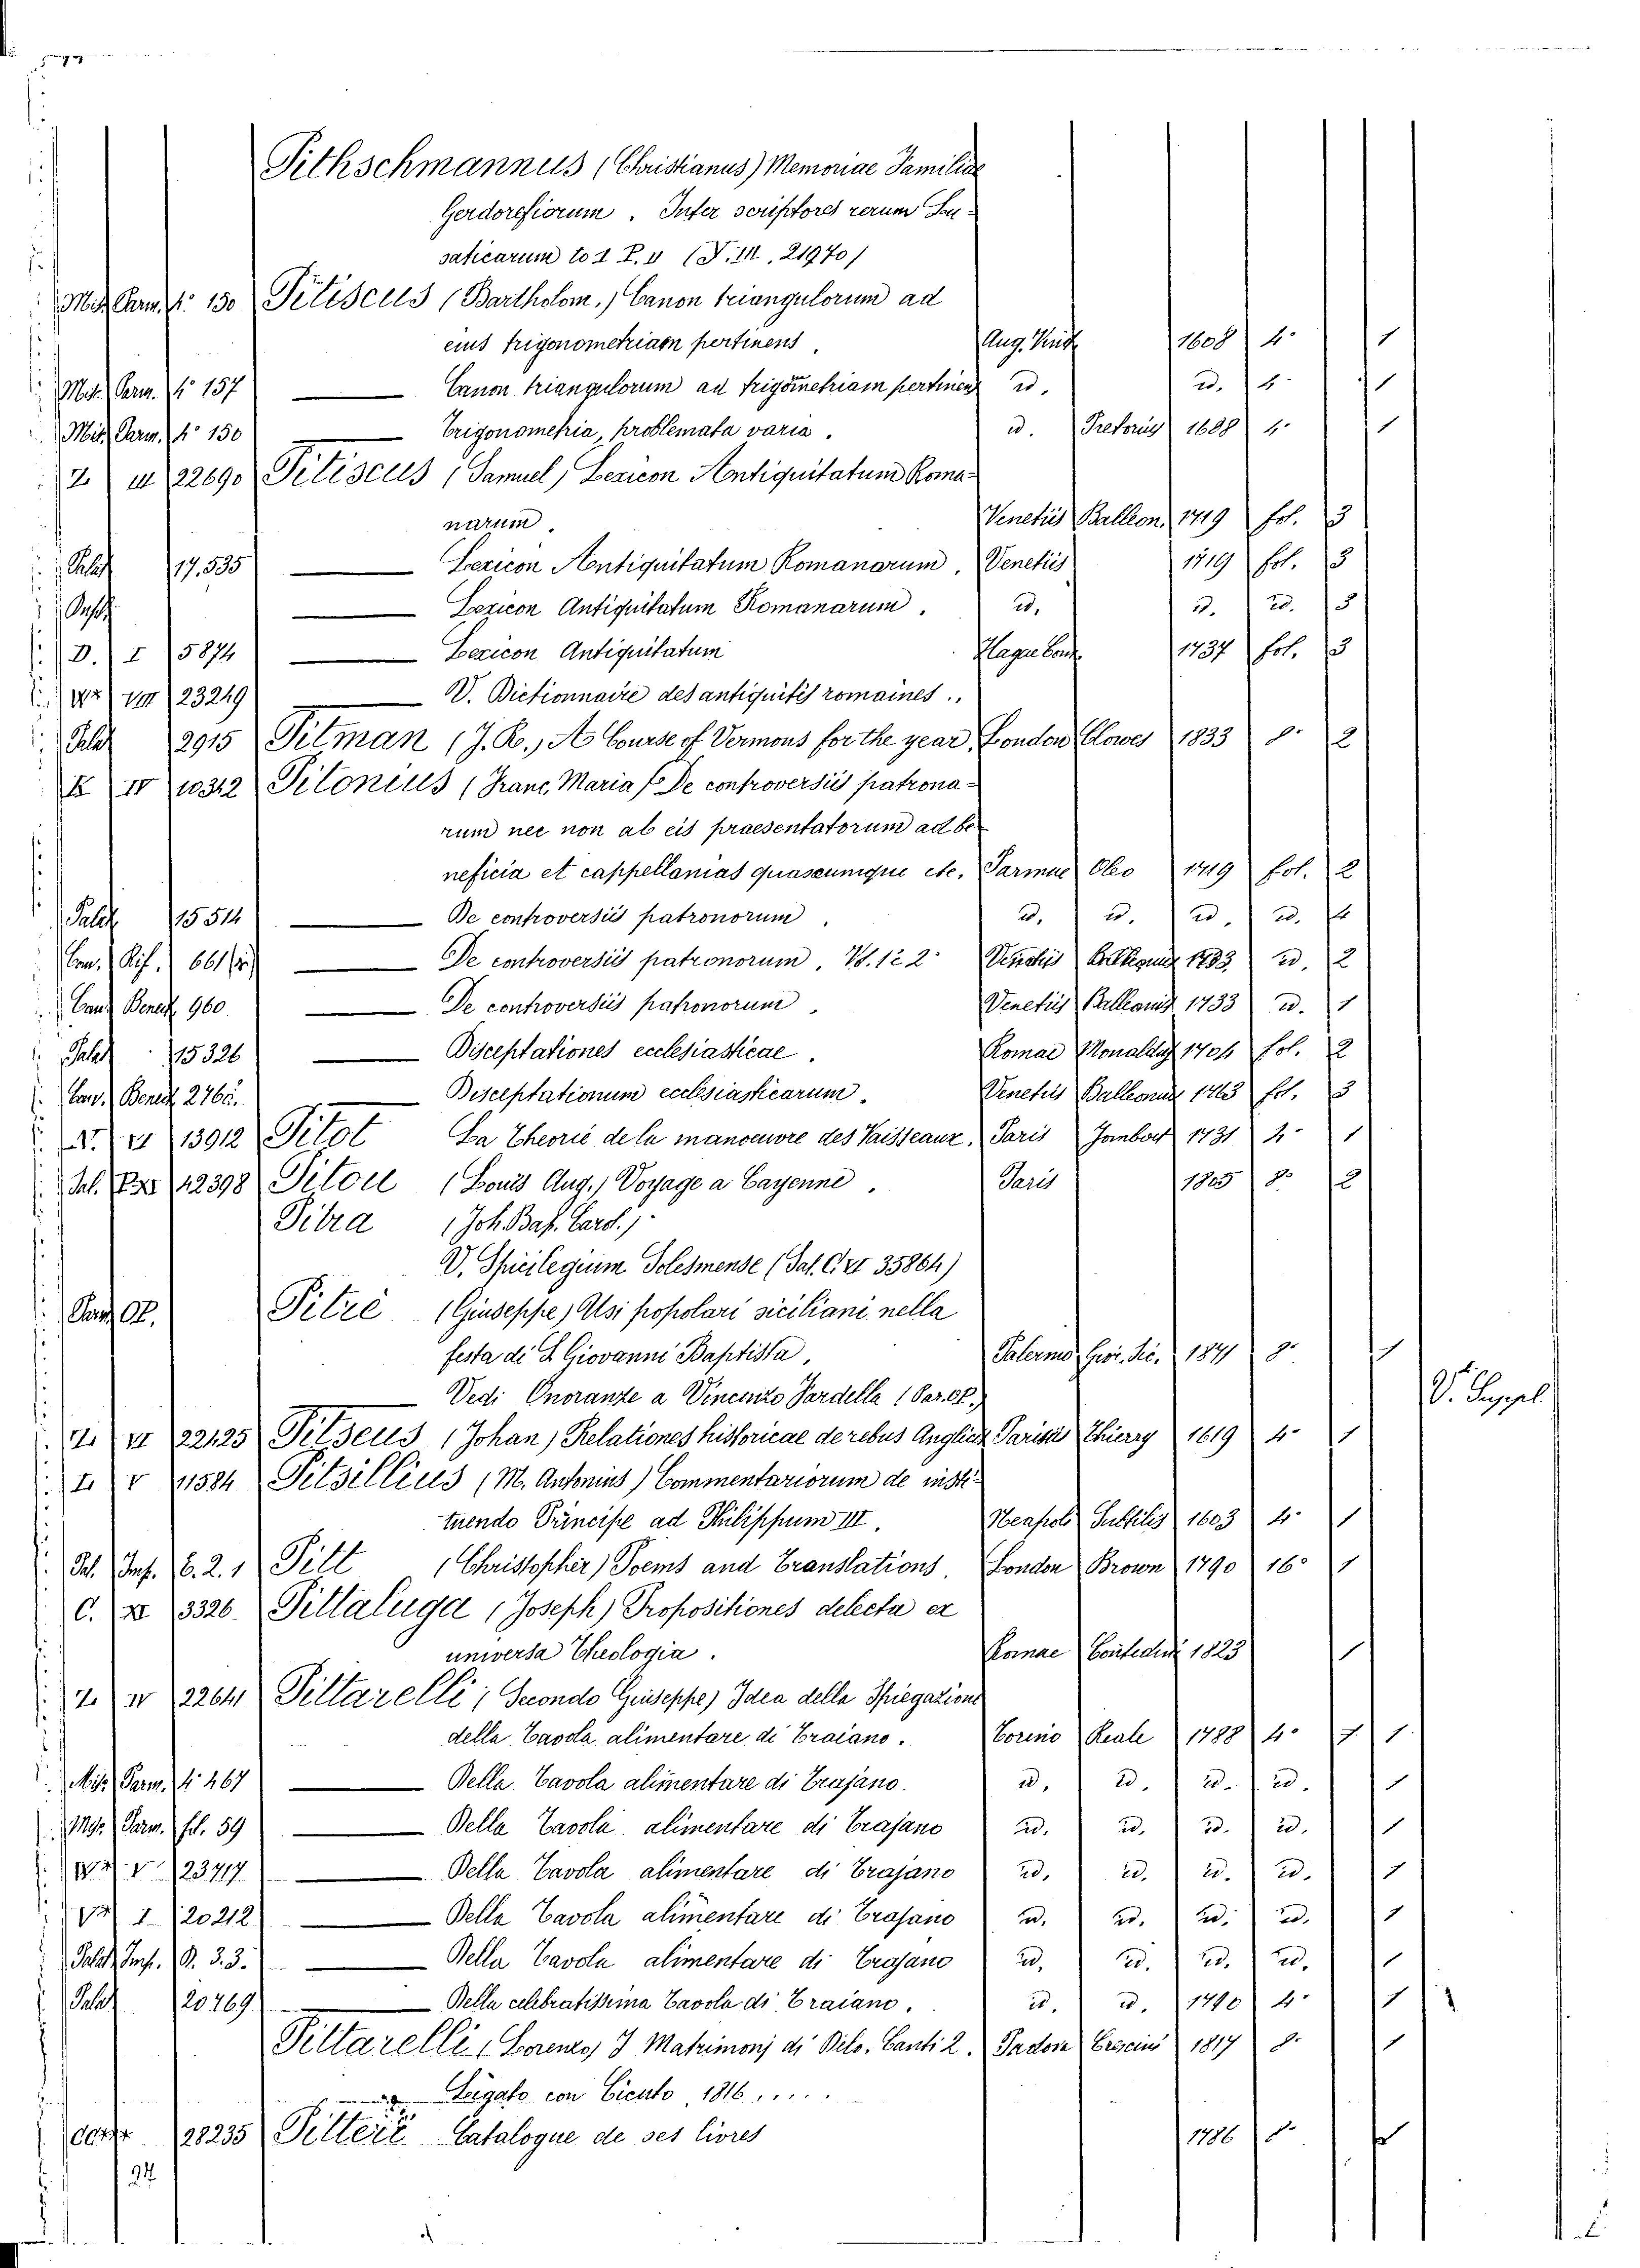 Pithschmannus (Christianus) Memoriae Familiae
Gerdorefiorum. Inter scriptores rerum Lu-
saticarum to 1 P. 4 (N. III. 21970)
Mis. Parm. 4º 150 Pitiscus (Bartholom.) Canon triangulorum ad
eius trigonometriam pertinens. Aug. Vind. 1608 4º 1
Mis. Parm. 4º 157 Canon triangulorum ad trigometriam pertinens id. id. 4º 1
Mis. Parm. 4º 150 Trigonometria, problemata varia. id. Pretorius 1688 4º 1
Z III 22690 Pitiscus (Samuel) Lexicon Antiquitatum Roma-
narum. Venetiis Balleon. 1719 fol. 3
Palat 17.535 Lexicon Antiquitatum Romanarum. Venetiis 1719 fol. 3
Lexicon Antiquitatum Romanarum. id. id. id. 3
D. I 5874 Lexicon Antiquitatum Hague 1737 fol. 3
VII 23249 V. Dictionnaire des antiquités romaines..
Palat 2915 Pitman (J. R.) A Course of Vermons for the year. London Clowes 1833 8º 2
K IV 10342 Pitonius (Franc. Maria) De controversiis patrona-
rum nec non ab eis praesentatorum ad be-
neficia et cappellanias quascumque etc. Parmae Oleo 1719 fol. 2
Palat 15514 De controversiis patronorum. id. id. id. id.
Con. Rif. 661 De controversiis patronorum. V. 1 e 2º Venetiis 1733 id. 2
Can. Bened. 960. De controversiis patronorum. Venetiis Balleonis 1733 id. 1
Palat 15326 Disceptationes ecclesiasticae. Romae Monaldus 1704 fol. 2
Can. Bened. 2765. Disceptationum ecclesiasticarum. Venetiis Balleonus 1763 fol. 3
VI 13912 Pitot La Theorie de la manoeuvre des Vaisseaux. Paris Jombert 1731 4º 1
Pal. 12398 Pitou (Louis Aug.) Voyage a Cayenne. Paris 1805 8º 2
Pitra (Joh. Bap. Card.)
V. Spicilegium Solesmense (Sal. C. VI 35864)
Pitrè (Giuseppe) Usi popolari siciliani nella
festa di S. Giovanni Baptista. Palermo Gior. Sic. 1871 8º 1
Vedi Onoranze a Vincenzo Pardella (Par. OP.) V. Suppl
Z. VI 22125 Pitseus (Johan) Relationes historicae de rebus Angliae Parisiis Thierry 1619 4º 1
I. V 11584 Pitsillius (M. Antonius) Commentariorum de insti-
tuendo Principe ad Philippum III. Neapoli Subtilis 1603 4º 1
Pal. Imp. 6. 2. 1 Pitt (Christopher) Poems and Translations. London Brown 1790 16º 1
C. XI 3326 Pittaluga (Joseph) Propositiones delecta ex
universa Theologia. Romae Contedini 1823 1
Z. IV 22641 Pittarelli (Secondo Giuseppe) Idea della Spiegazione
della Tavola alimentare di Traiano. Torino Reale 1788 4º 1
Mis. Parm. 4º 467 Della Tavola alimentare di Trajano. id. id. id. id. 1
Mis. Parm. fol. 59 Della Tavola alimentare di Trajano id. id. id. id. 1
V 23717 Della Tavola alimentare di Trajano id. id. id. id. 1
I 20212 Della Tavola alimentare di Trajano id. id. id. id. 1
Palat. Imp. D. 3. 3. Della Tavola alimentare di Trajano id. id. id. id. 1
Palat 20769 Della celebratissima Tavola di Traiano. id. id. 1790 4º 1
Pittarelli (Lorenzo) I Matrimonj di Delo. Canti 2. Padova Crescini 1817 8º 1
Legato con Cicuto, 1816.....
28235 Pitteri Catalogue de ses livres 1786 8º 1
24